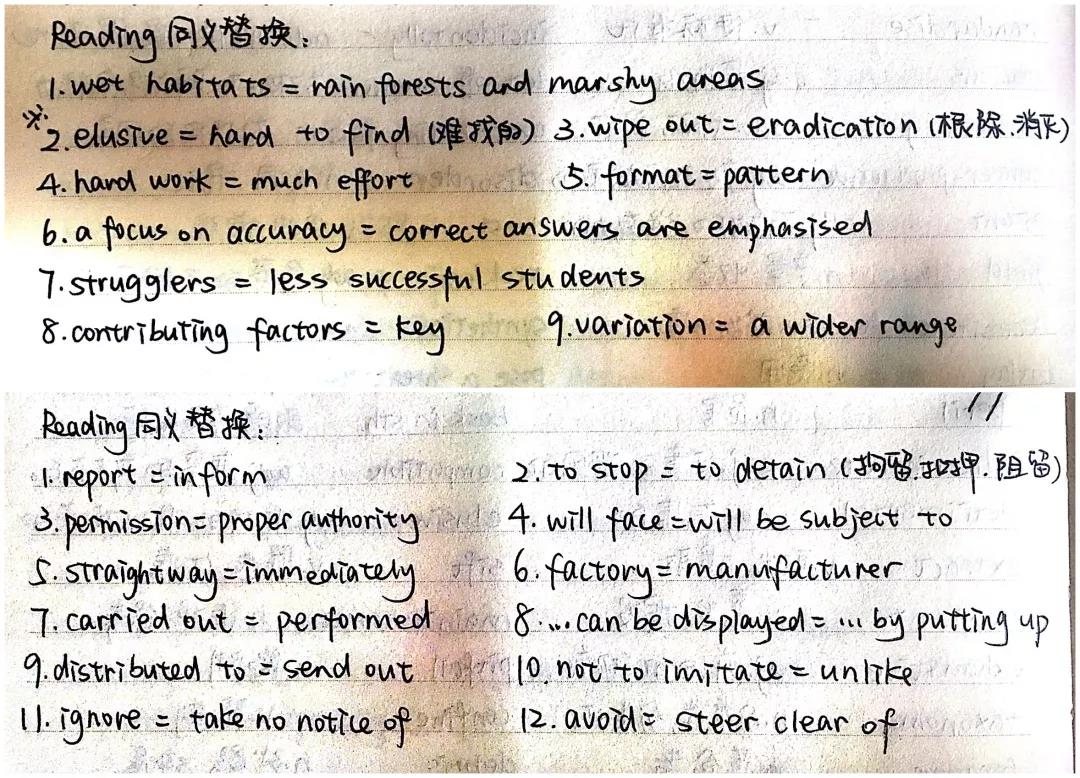 Reading 同义替换:
1. wet habitats = rain forests and marshy areas
※2. elusive = hard to find (难找的) 3. wipe out = eradication (根除.消灭)
4. hard work = much effort 5. format = pattern
6. a focus on accuracy = correct answers are emphasised
7. strugglers = less successful students
8. contributing factors = key 9. variation = a wider range
Reading 同义替换:
1. report = inform 2. to stop = to detain (拘留.扣押.阻留)
3. permission = proper authority 4. will face = will be subject to
5. straightway = immediately 6. factory = manufacturer
7. carried out = performed 8. ... can be displayed = ... by putting up
9. distributed to = send out 10. not to imitate = unlike
11. ignore = take no notice of 12. avoid = steer clear of